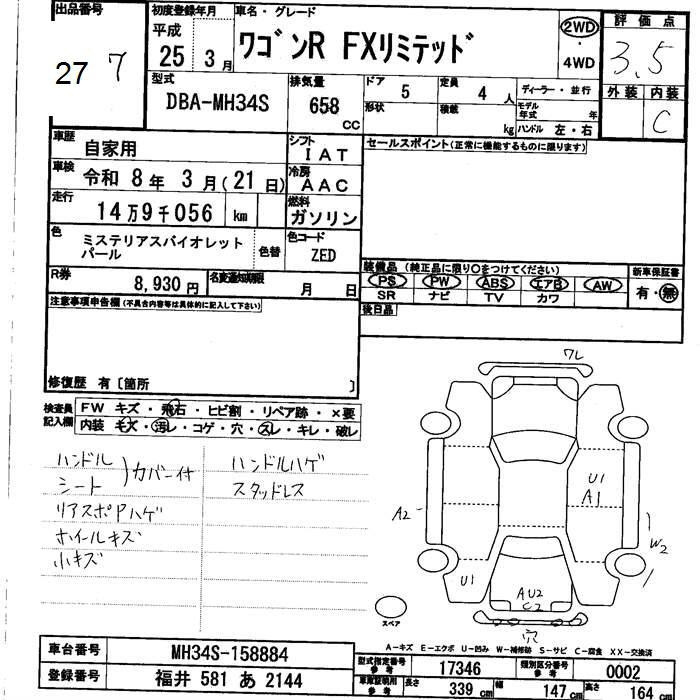 出品番号
27 7
初度登録年月
平成
25 年 3 月
車名・グレード
ワゴンR FXリミテッド
2WD
・
4WD
評価点
3.5
外装 内装
C
型式
DBA-MH34S
排気量
658 CC
ドア 5
形状
定員 4 人
積載 kg
ディーラー・並行
モデル年式 年
ハンドル 左・右
車歴 自家用
シフト IAT
車検 令和 8年 3月(21日)
冷房 AAC
走行 14万9千056 km
燃料 ガソリン
色 ミステリアスバイオレットパール
色替
色コード ZED
R券 8,930円
名変通知期限 月 日
セールスポイント(正常に機能するものに限ります)
装備品(純正品に限り○をつけてください)
PS PW ABS エアB AW
SR ナビ TV カワ
新車保証書
有・無
後日品
注意事項申告欄(不具合内容等は具体的に記入して下さい)
修復歴 有〔箇所 〕
検査員記入欄
FW キズ・飛石・ヒビ割・リペア跡・×要
内装 キズ・汚レ・コゲ・穴・スレ・キレ・破レ
ハンドル
シート
)カバー付
リアスポPハゲ
ホイールキズ
小キズ
ハンドルハゲ
スタッドレス
ワレ
U1
A1
A2
W2
U1
AU2
C2
穴
スペア
A-キズ E-エクボ U-凹み W-補修跡 S-サビ C-腐食 XX-交換済
車台番号 MH34S-158884
登録番号 福井 581 あ 2144
型式指定番号 参考 17346
類別区分番号 参考 0002
車庫証明用 参考 長さ 339 cm 幅 147 cm 高さ 164 cm